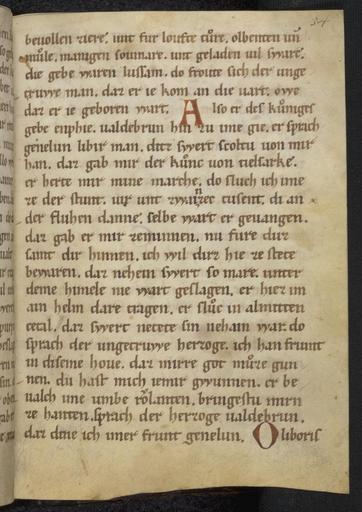 bevollen ziere. unt fur loufte túre. olbenten un̄
mule. manigen soumare. unt geladen uil sware.
die gebe waren lussam. do froute sich der unge
truwe man. daz er ie kom an die uart. owe
daz er ie geboren wart. Also er des kúniges
gebe enphie. ualdebrun hin zu ime gie. er sprach
genelun liber man. ditz swert scoltu von mir
han. daz gab mir der kunc uon
er herte mir mine marche. do sluch ich ime
ze der stunt. tusent. di an
der fluhen danne. selbe wart er geuangen.
daz gab er mir ze minnen. nu fure duz
samt dir hinnen. ich wil dirz hie ze stete
bewaren. daz nehein swert so mare. unter
deme himele nie wart geslagen. er hiez im
ain helm dare tragen. er
daz swert netete sin neham war. do
sprach der ungetruwe herzoge. ich han frunt
in diseme houe. daz mirre got muze gun
nen. du hast mich iemir gwunnen. er be
ualch ime umbe rolanten. bringestu mirn
ze hanten. sprach der herzoge ualdebrun.
daz dine ich imer frunt genelun. Oliboris